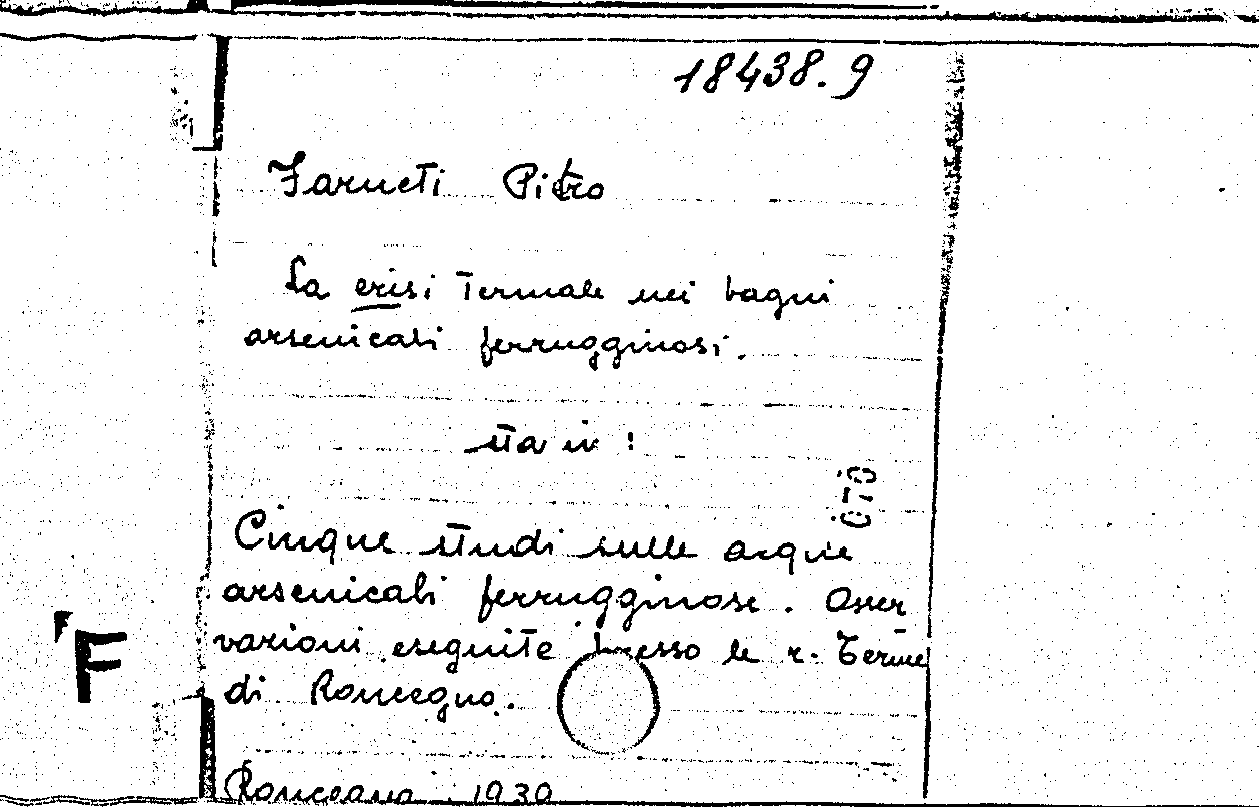 18438.9
Farneti Pietro
La crisi termale nei bagni
arsenicali ferrugginosi.
sta in :
070
Cinque studi sulle acque
arsenicali ferrugginose. Osser
vazioni eseguite presso le r. Terme
di Roncegno.
F
Roncegno, 1930